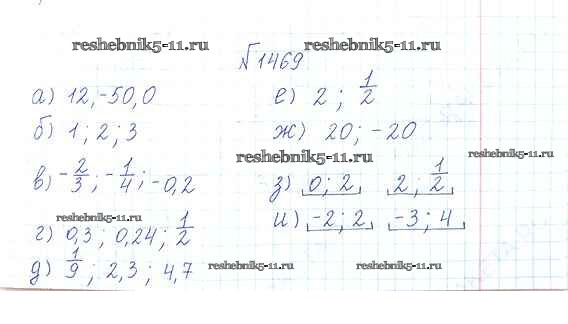 reshebnik5-11.ru reshebnik5-11.ru
№1469
а) 12, -50, 0
б) 1; 2; 3
в) -2/3; -1/4; -0,2
reshebnik5-11.ru
г) 0,3; 0,24; 1/2
д) 1/9; 2,3; 4,7
е) 2; 1/2
ж) 20; -20
reshebnik5-11.ru reshebnik5-11.ru
з) 0; 2 2; 1/2
и) -2; 2 -3; 4
reshebnik5-11.ru reshebnik5-11.ru